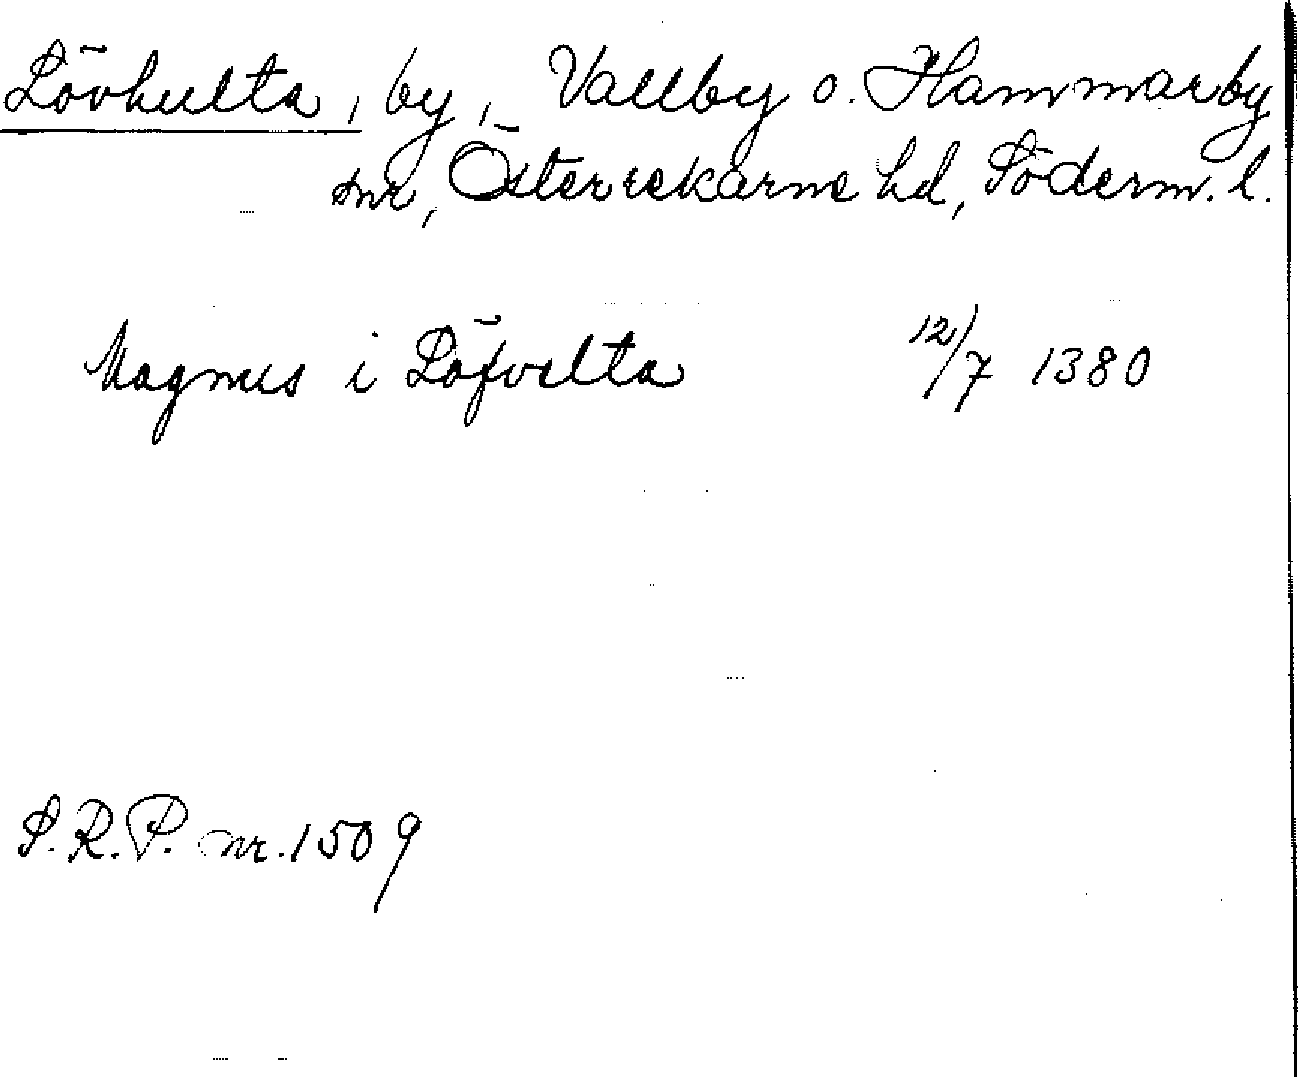 Lövhulta, by, Vallby o. Hammarby
snr, Österrekarne hd, Söderm. l.
Magnus i Löfvelta 12/7 1380
S.R.P. nr. 1509